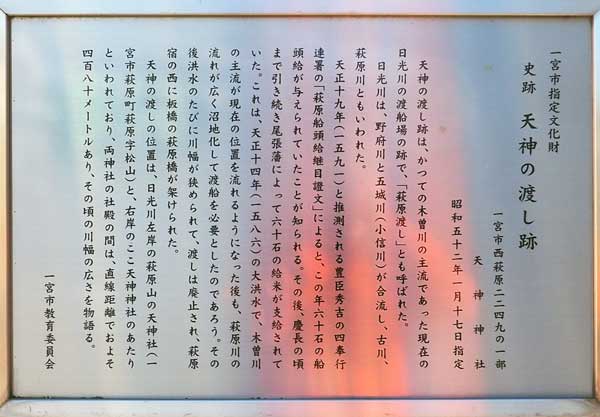 一宮市指定文化財
史跡 天神の渡し跡
一宮市西萩原二二四九の一部
天神神社
昭和五十二年一月十七日指定
天神の渡し跡は、かつての木曽川の主流であった現在の
日光川の渡船場の跡で、「萩原渡し」とも呼ばれた。
日光川は、野府川と五城川(小信川)が合流し、古川、
萩原川ともいわれた。
天正十九年(一五九一)と推測される豊臣秀吉の四奉行
連署の「萩原船頭給継目證文」によると、この年六十石の船
頭給が与えられていたことが知られる。その後、慶長の頃
まで引き続き尾張藩によって六十石の給米が支給されて
いた。これは、天正十四年(一五八六)の大洪水で、木曽川
の主流が現在の位置を流れるようになった後も、萩原川の
流れが広く沼地化して渡船を必要としたのであろう。その
後洪水のたびに川幅が狭められて、渡しは廃止され、萩原
宿の西に板橋の萩原橋が架けられた。
天神の渡しの位置は、日光川左岸の萩原山の天神社(一
宮市萩原町萩原字松山)と、右岸のここ天神神社のあたり
といわれており、両神社の社殿の間は、直線距離でおよそ
四百八十メートルあり、その頃の川幅の広さを物語る。
一宮市教育委員会